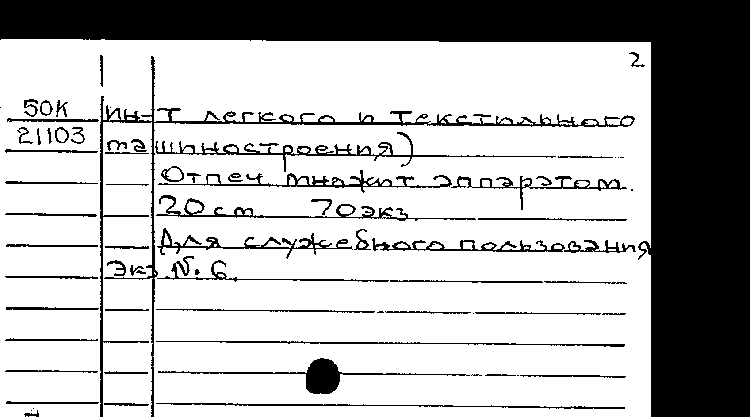 2
50К Ин-т легкого и текстильного
21103 машиностроения)
Отпеч множит аппаратом.
20 см 70 экз.
Для служебного пользования
Экз №. 6.